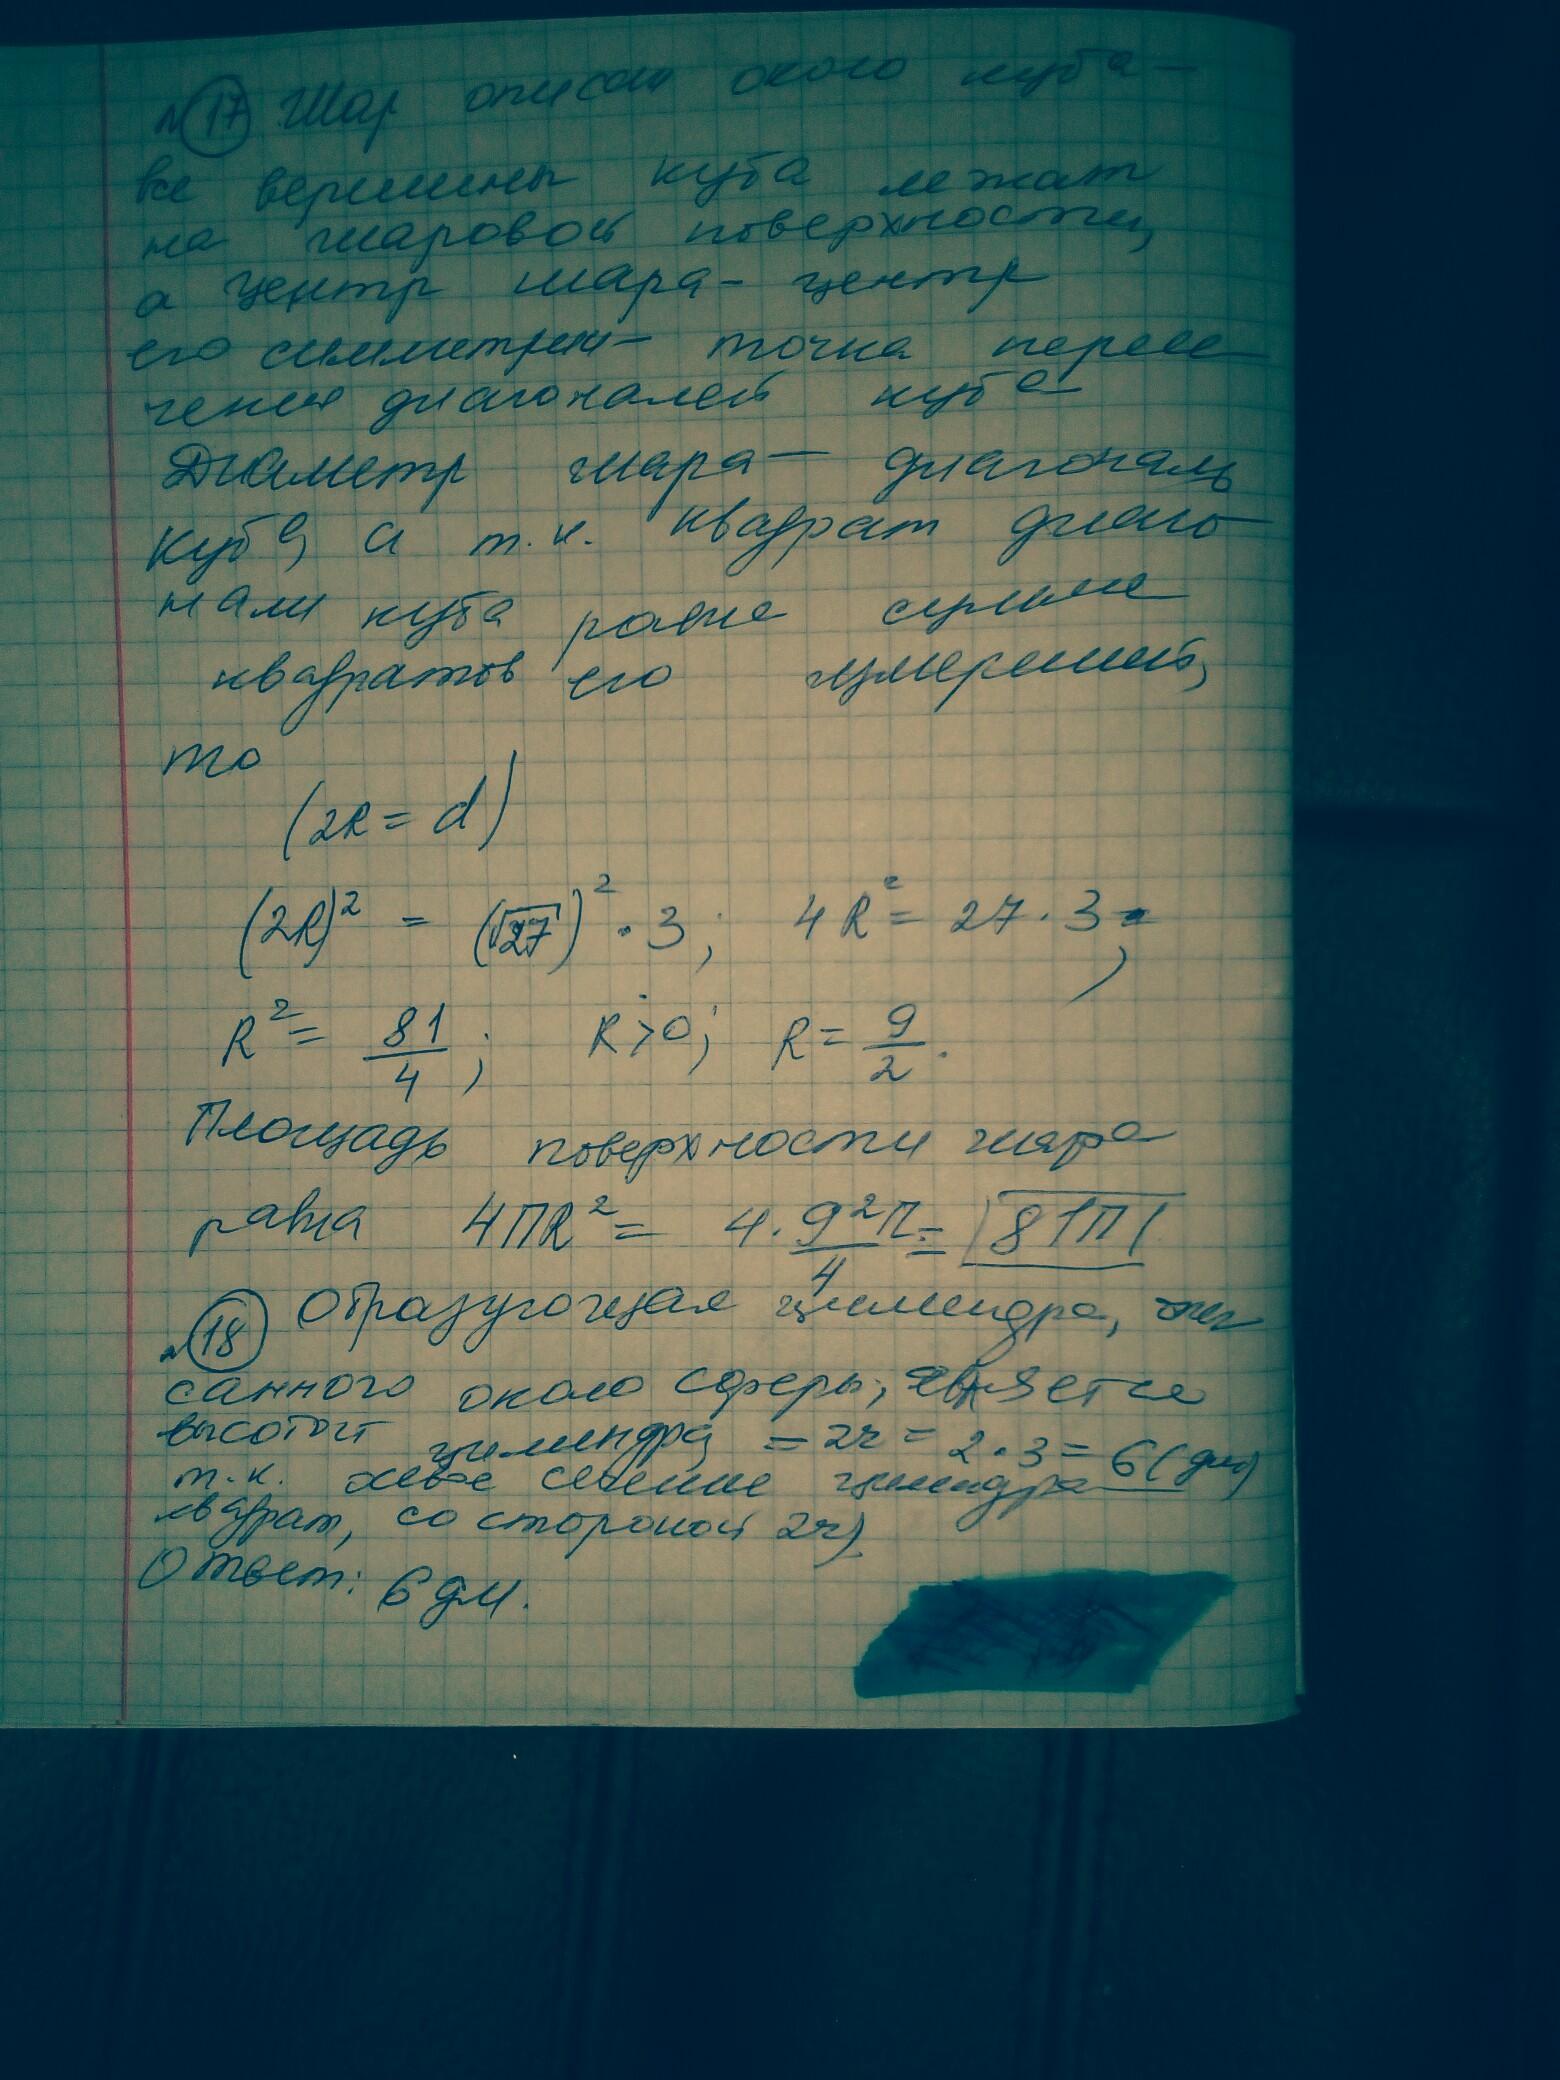 № 17 Шар описан около куба —
все вершины куба лежат
на шаровой поверхности,
а центр шара - центр
его симметрии - точка пересе
чения диагоналей куба
Диаметр шара — диагональ
куба, а т.к. квадрат диаго
нали куба равна сумме
квадратов его измерений,
то
(2R = d)
(2R)² = (√27)² · 3; 4R² = 27 · 3;
R² = 81/4; R > 0; R = 9/2.
Площадь поверхности шара
равна 4ПR² = 4 · 9²П/4 = 81П
№ 18 Образующая цилиндра, опи
санного около сферы, является
высотой цилиндра = 2r = 2 · 3 = 6 (дм)
т.к. осевое сечение цилиндра
квадрат, со стороной 2r)
Ответ: 6 дм.